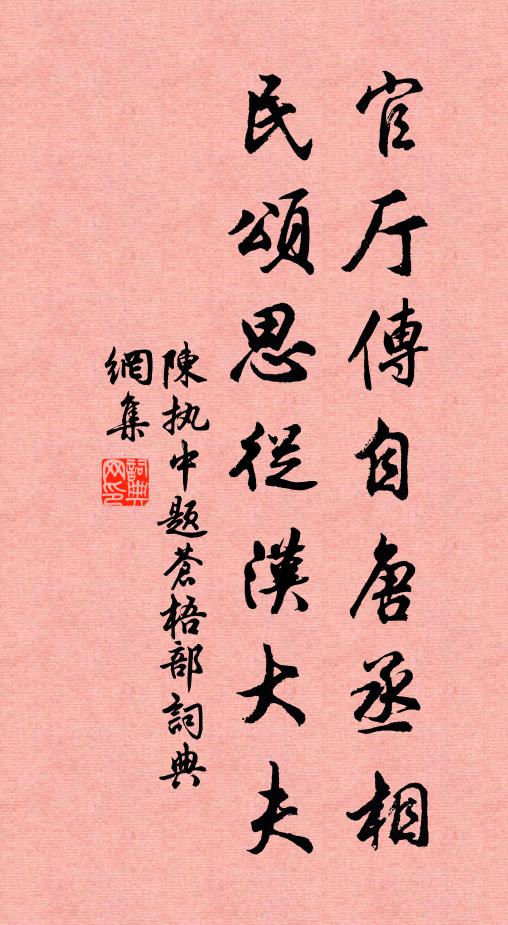 官厅傳自唐丞相
民頌思從漢大夫
陳执中题蒼梧部詞典
網集
詞典網印